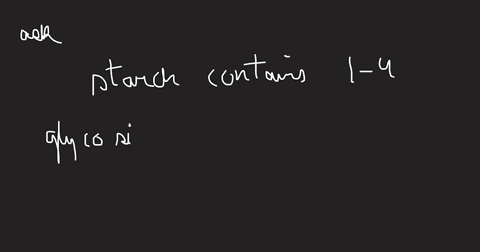 ask
starch contains 1-4
glyco si